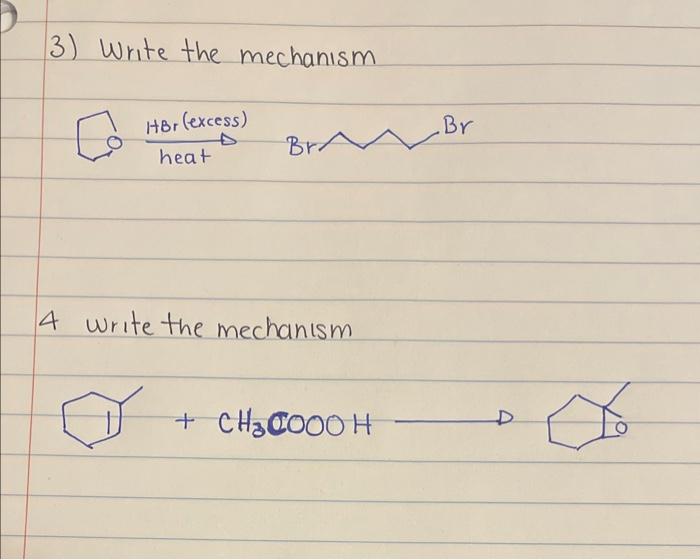 3) Write the mechanism
HBr (excess)
heat
O
Br
Br
4 write the mechanism
+ CH3COOOH
O